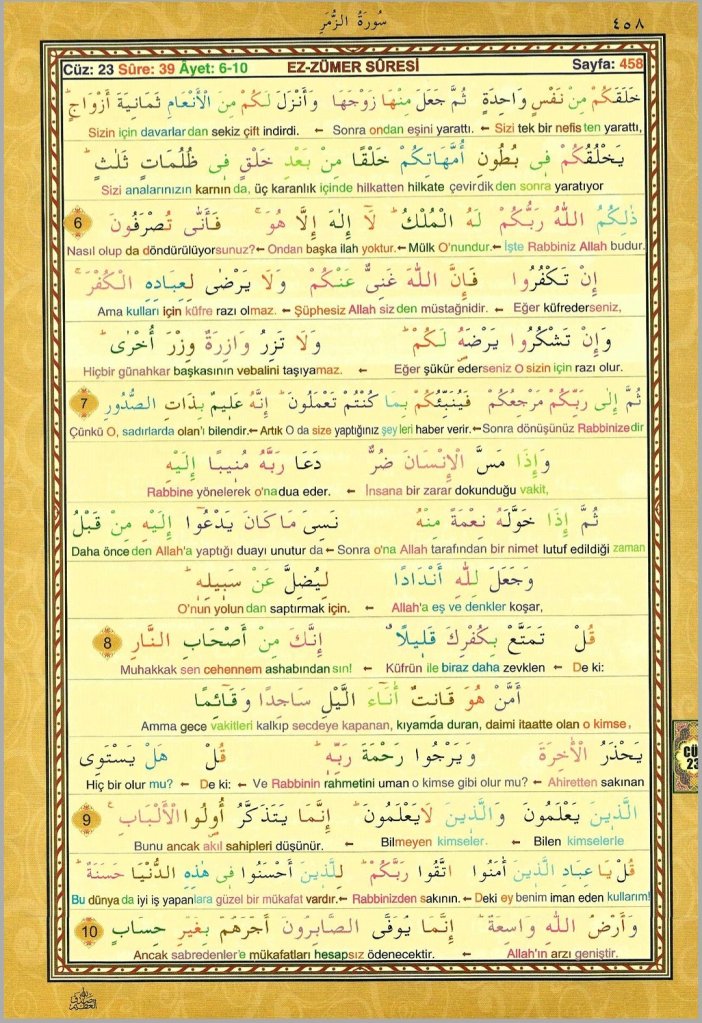 سُورَةُ الزُّمَرِ ٤٥٨
Cüz: 23 Sûre: 39 Âyet: 6-10 EZ-ZÜMER SÛRESİ Sayfa: 458
خَلَقَكُمْ مِنْ نَفْسٍ وَاحِدَةٍ ثُمَّ جَعَلَ مِنْهَا زَوْجَهَا وَأَنْزَلَ لَكُمْ مِنَ الْأَنْعَامِ ثَمَانِيَةَ أَزْوَاجٍ ۜ
Sizin için davarlardan sekiz çift indirdi. ← Sonra ondan eşini yarattı. ← Sizi tek bir nefisten yarattı,
يَخْلُقُكُمْ فِى بُطُونِ أُمَّهَاتِكُمْ خَلْقًا مِنْ بَعْدِ خَلْقٍ فِى ظُلُمَاتٍ ثَلٰثٍ ۜ
Sizi analarınızın karnında, üç karanlık içinde hilkatten hilkate çevirdikden sonra yaratıyor
ذٰلِكُمُ اللّٰهُ رَبُّكُمْ لَهُ الْمُلْكُ ۜ لَآ إِلٰهَ إِلَّا هُوَ ۚ فَأَنّٰى تُصْرَفُونَ 6
Nasıl olup da döndürülüyorsunuz? ← Ondan başka ilah yoktur. ← Mülk O'nundur. ← İşte Rabbiniz Allah budur.
إِنْ تَكْفُرُوا فَإِنَّ اللّٰهَ غَنِىٌّ عَنْكُمْ وَلَا يَرْضٰى لِعِبَادِهِ الْكُفْرَ ۚ
Ama kulları için küfre razı olmaz. ← Şüphesiz Allah sizden müstağnidir. ← Eğer küfrederseniz,
وَإِنْ تَشْكُرُوا يَرْضَهُ لَكُمْ ۜ وَلَا تَزِرُ وَازِرَةٌ وِزْرَ أُخْرٰى ۜ
Hiçbir günahkar başkasının vebalini taşıyamaz. ← Eğer şükür ederseniz O sizin için razı olur.
ثُمَّ إِلٰى رَبِّكُمْ مَرْجِعُكُمْ فَيُنَبِّئُكُمْ بِمَا كُنْتُمْ تَعْمَلُونَ ۜ إِنَّهُ عَلِيمٌ بِذَاتِ الصُّدُورِ 7
Çünkü O, sadırlarda olan'ı bilendir. ← Artık O da size yaptığınız şeyleri haber verir. ← Sonra dönüşünüz Rabbinizedir
وَإِذَا مَسَّ الْإِنْسَانَ ضُرٌّ دَعَا رَبَّهُ مُنِيبًا إِلَيْهِ
Rabbine yönelerek o'na dua eder. ← İnsana bir zarar dokunduğu vakit,
ثُمَّ إِذَا خَوَّلَهُ نِعْمَةً مِنْهُ نَسِىَ مَا كَانَ يَدْعُوٓا إِلَيْهِ مِنْ قَبْلُ
Daha önceden Allah'a yaptığı duayı unutur da ← Sonra o'na Allah tarafından bir nimet lutuf edildiği zaman
وَجَعَلَ لِلّٰهِ أَنْدَادًا لِيُضِلَّ عَنْ سَبِيلِهِ ۜ
O'nun yolundan saptırmak için. ← Allah'a eş ve denkler koşar,
قُلْ تَمَتَّعْ بِكُفْرِكَ قَلِيلًا ۗ إِنَّكَ مِنْ أَصْحَابِ النَّارِ 8
Muhakkak sen cehennem ashabındansın! ← Küfrün ile biraz daha zevklen ← De ki:
أَمَّنْ هُوَ قَانِتٌ أٰنَآءَ الَّيْلِ سَاجِدًا وَقَآئِمًا
Amma gece vakitleri kalkıp secdeye kapanan, kıyamda duran, daimi itaatte olan o kimse,
يَحْذَرُ الْأٰخِرَةَ وَيَرْجُوا رَحْمَةَ رَبِّهِ ۜ قُلْ هَلْ يَسْتَوِى
Hiç bir olur mu? ← De ki: ← Ve Rabbinin rahmetini uman o kimse gibi olur mu? ← Ahiretten sakınan
CÜZ
23
الَّذِينَ يَعْلَمُونَ وَالَّذِينَ لَايَعْلَمُونَ ۜ إِنَّمَا يَتَذَكَّرُ أُولُوا الْأَلْبَابِ ۚ 9
Bunu ancak akıl sahipleri düşünür. ← Bilmeyen kimseler. ← Bilen kimselerle
قُلْ يَا عِبَادِ الَّذِينَ أٰمَنُوا اتَّقُوا رَبَّكُمْ ۜ لِلَّذِينَ أَحْسَنُوا فِى هٰذِهِ الدُّنْيَا حَسَنَةٌ ۜ
Bu dünyada iyi iş yapanlara güzel bir mükafat vardır. ← Rabbinizden sakının. ← Deki ey benim iman eden kullarım!
وَأَرْضُ اللّٰهِ وَاسِعَةٌ ۜ إِنَّمَا يُوَفَّى الصَّابِرُونَ أَجْرَهُمْ بِغَيْرِ حِسَابٍ 10
Ancak sabredenler'e mükafatları hesapsız ödenecektir. ← Allah'ın arzı geniştir.